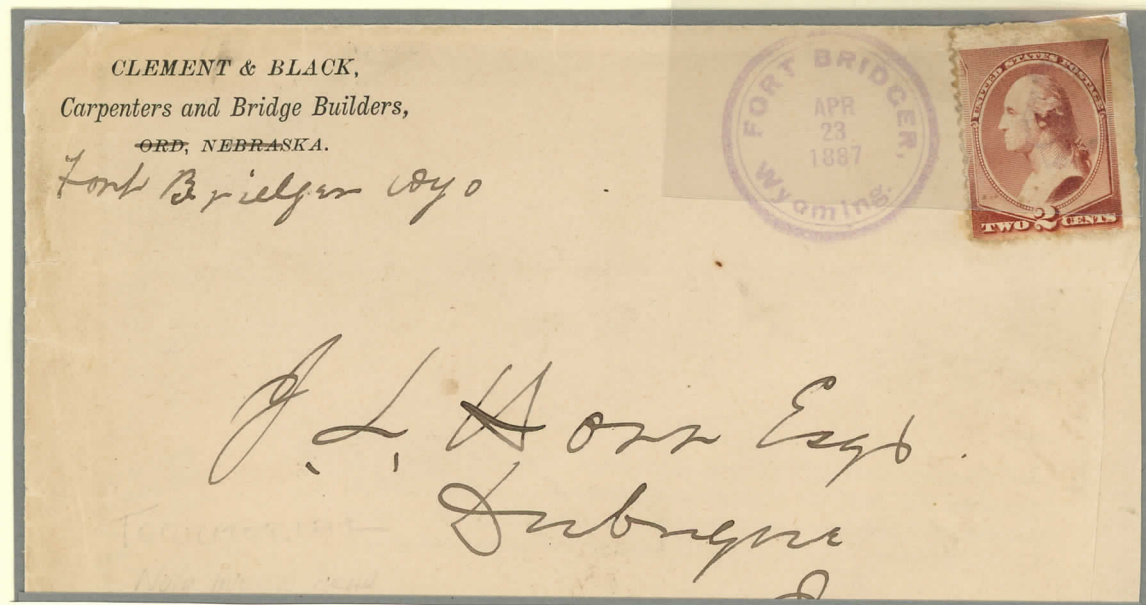 CLEMENT & BLACK,
Carpenters and Bridge Builders,
ORD, NEBRASKA.
Fort Bridger Wyo
FORT BRIDGER,
APR
23
1887
Wyoming.
UNITED STATES POSTAGE
TWO 2 CENTS
J. L. Horr Esqr
Dubuque